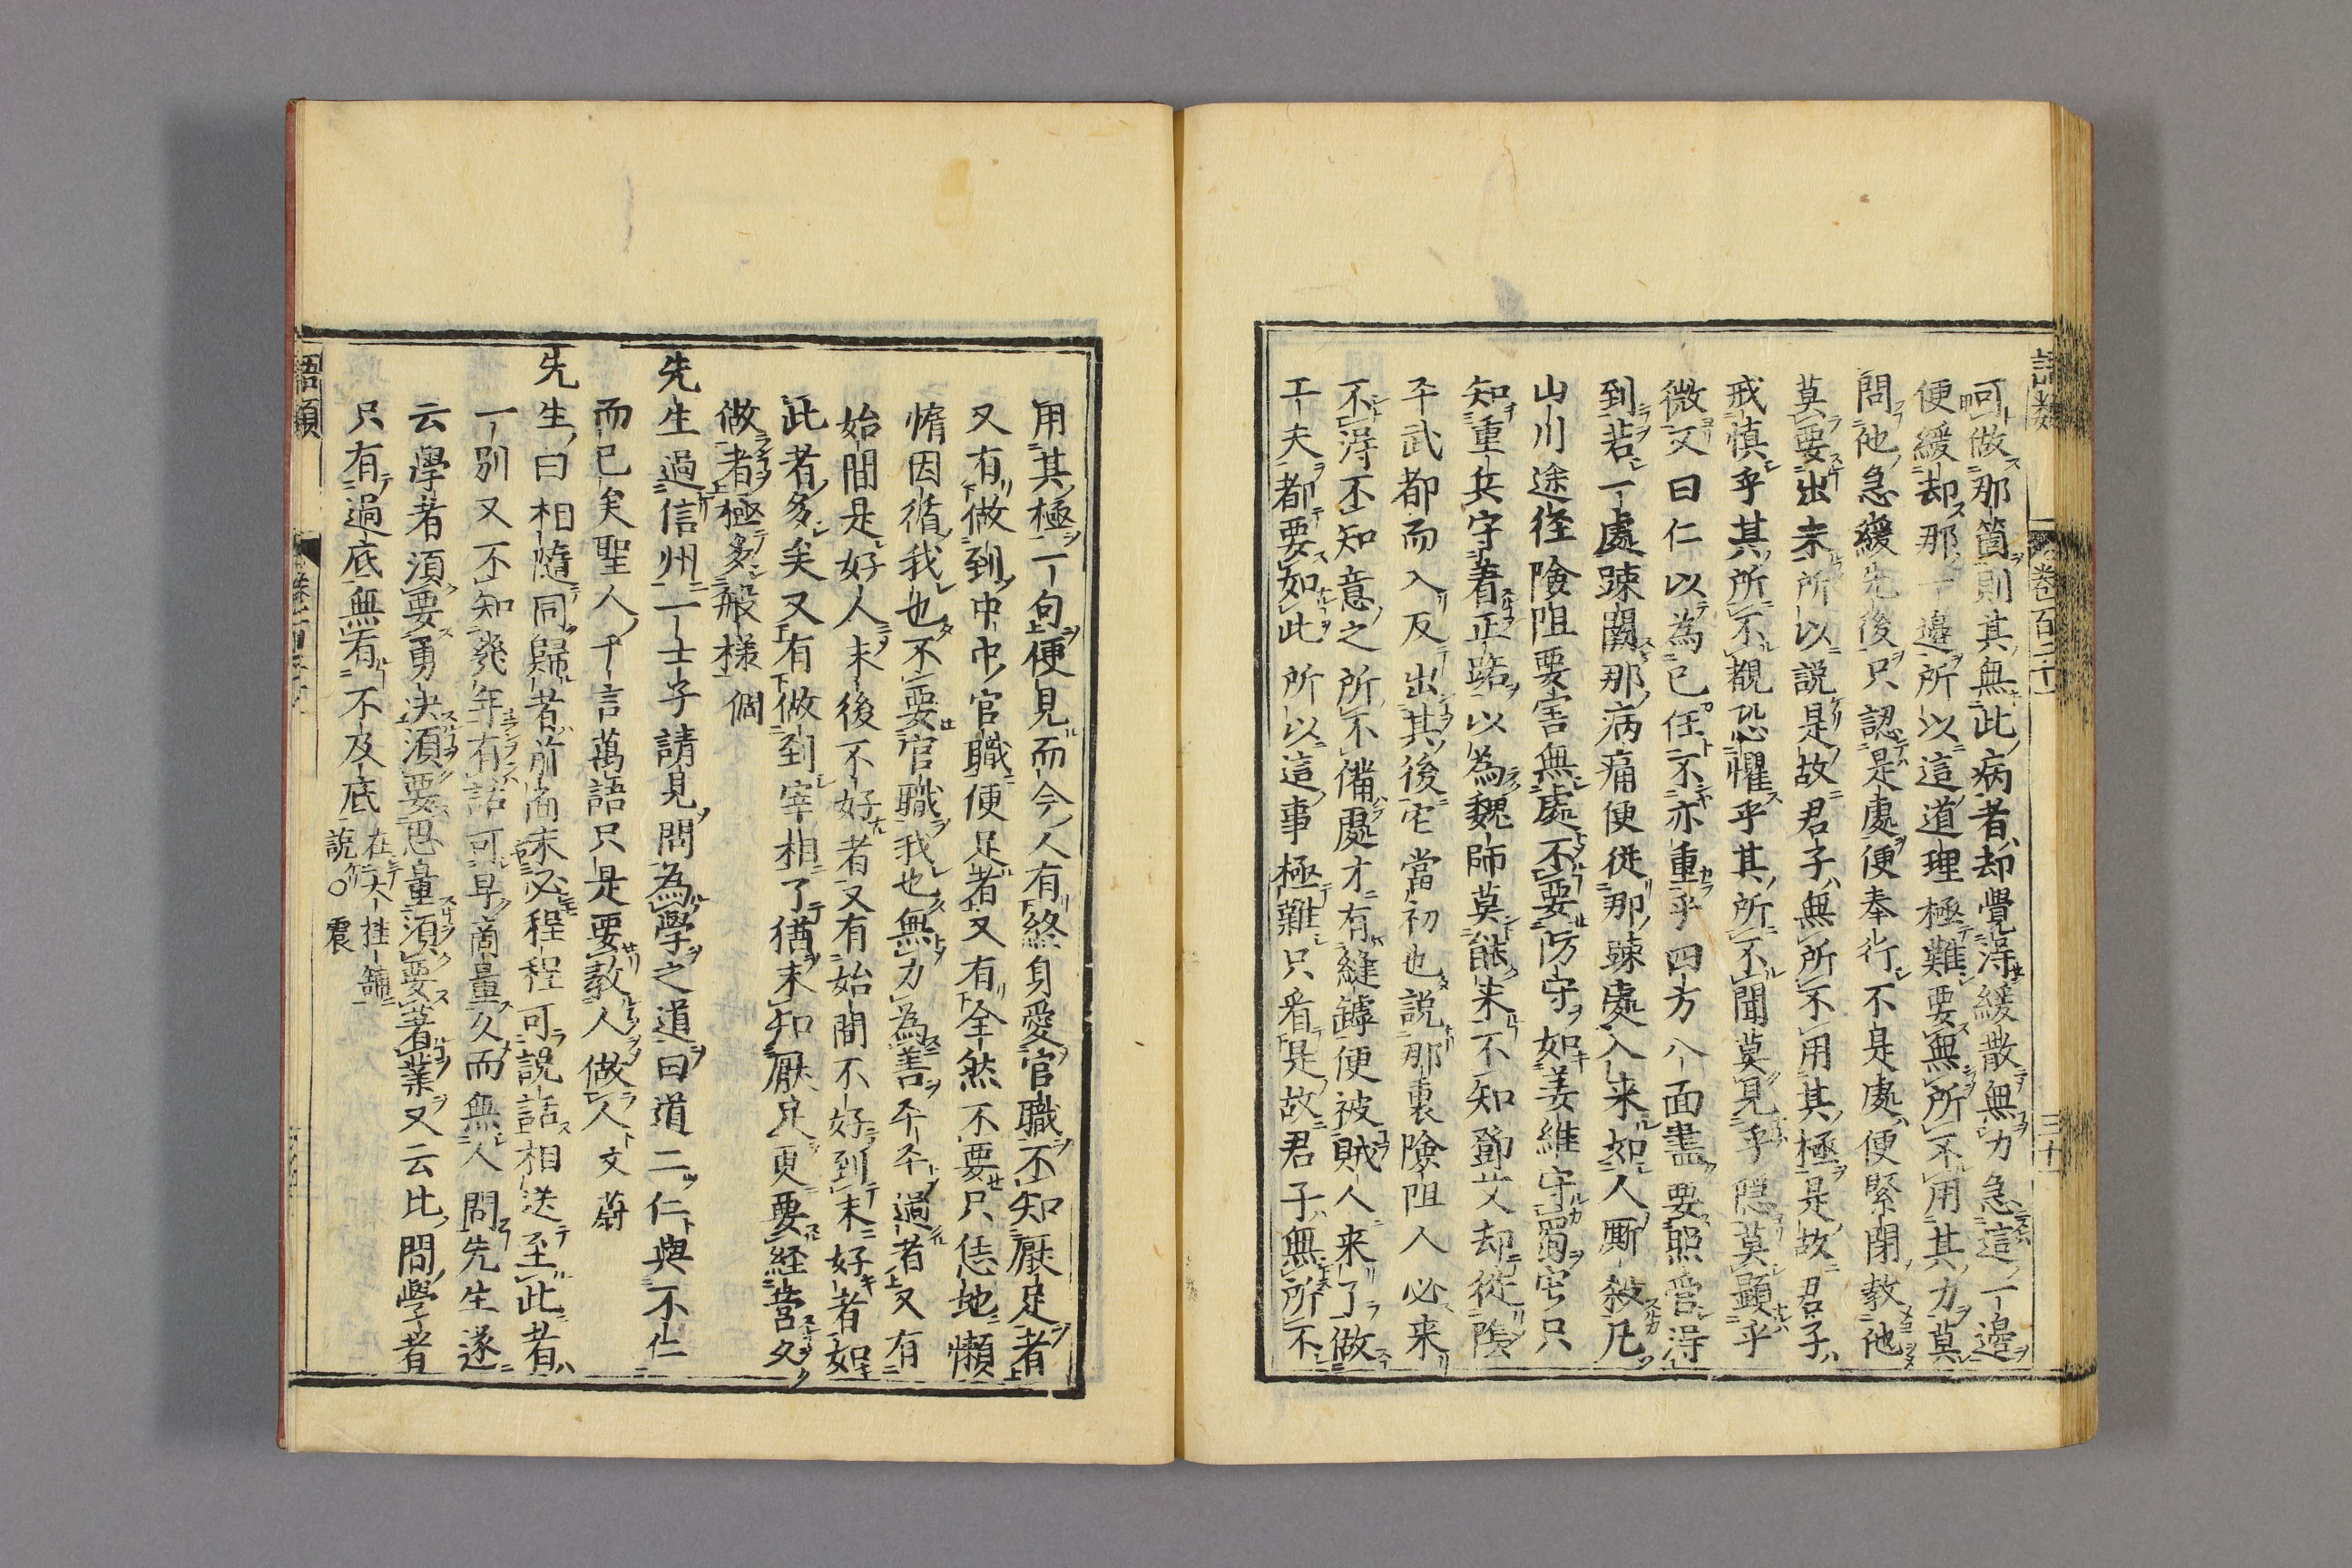 語類　卷百二十一　三十
可做那箇則其無此病者却覺得緩散無力急這一邊
便緩却那一邊所以這道理極難要無所不用其力莫
問他急緩先後只認是處便奉行不是處便緊閉教他
莫要出来所以説是故君子無所不用其極是故君子
戒慎乎其所不覩恐懼乎其所不聞莫見乎隱莫顯乎
微又曰仁以為己任不亦重乎四方八面盡要照管得
到若一處踈闕那病痛便從那踈處入来如人厮殺凡
山川途徑險阻要害無處不要防守如姜維守蜀它只
知重兵守着正路以為魏師莫能来不知鄧艾却從陰
平武都而入反出其後它當初也説那裏險阻人必来
不得不知意之所不備處才有縫罅便被賊人来了做
工夫都要如此所以這事極難只看是故君子無所不
用其極一句便見而今人有終身愛官職不知厭足者
又有做到中中官職便足者又有全然不要只恁地懶
惰因循我也不要官職我也無力為善平平過者又有
始間是好人末後不好者又有始間不好到末好者如
此者多矣又有做到宰相了猶未知厭足更要經營久
做者極多般樣　僩
先生過信州一士子請見問為學之道曰道二仁與不仁
而已矣聖人千言萬語只是要教人做人　文蔚
先生曰相隨同歸者前面未必程程可説話相送至此者
一別又不知幾年有話可早商量久而無人問先生遂
云學者須要勇決須要思量須要著業又云此間學者
只有過底無有不及底　在大桂鋪説〇震
語類